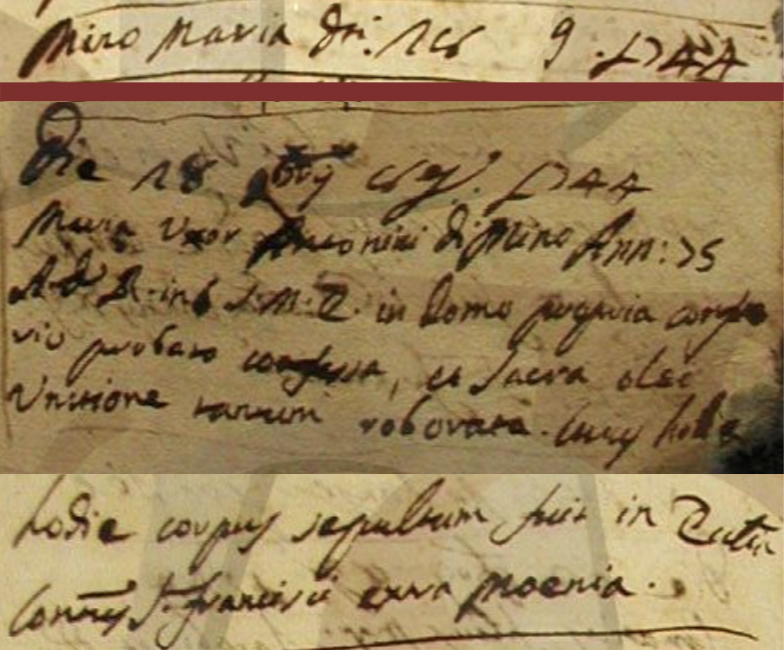 Miro Maria di: 9 1744
Die 18 eiusd. 1744
Maria Uxor Antonini di Miro Ann: 75
in C. S. M. E. in domo propria confessa
rio probato confessa, et Sacra olei
Unctione tantum roborata. Cuius hodie
hodie corpus sepultum fuit in Eccl.
Conv.s S. Francisci extra moenia.